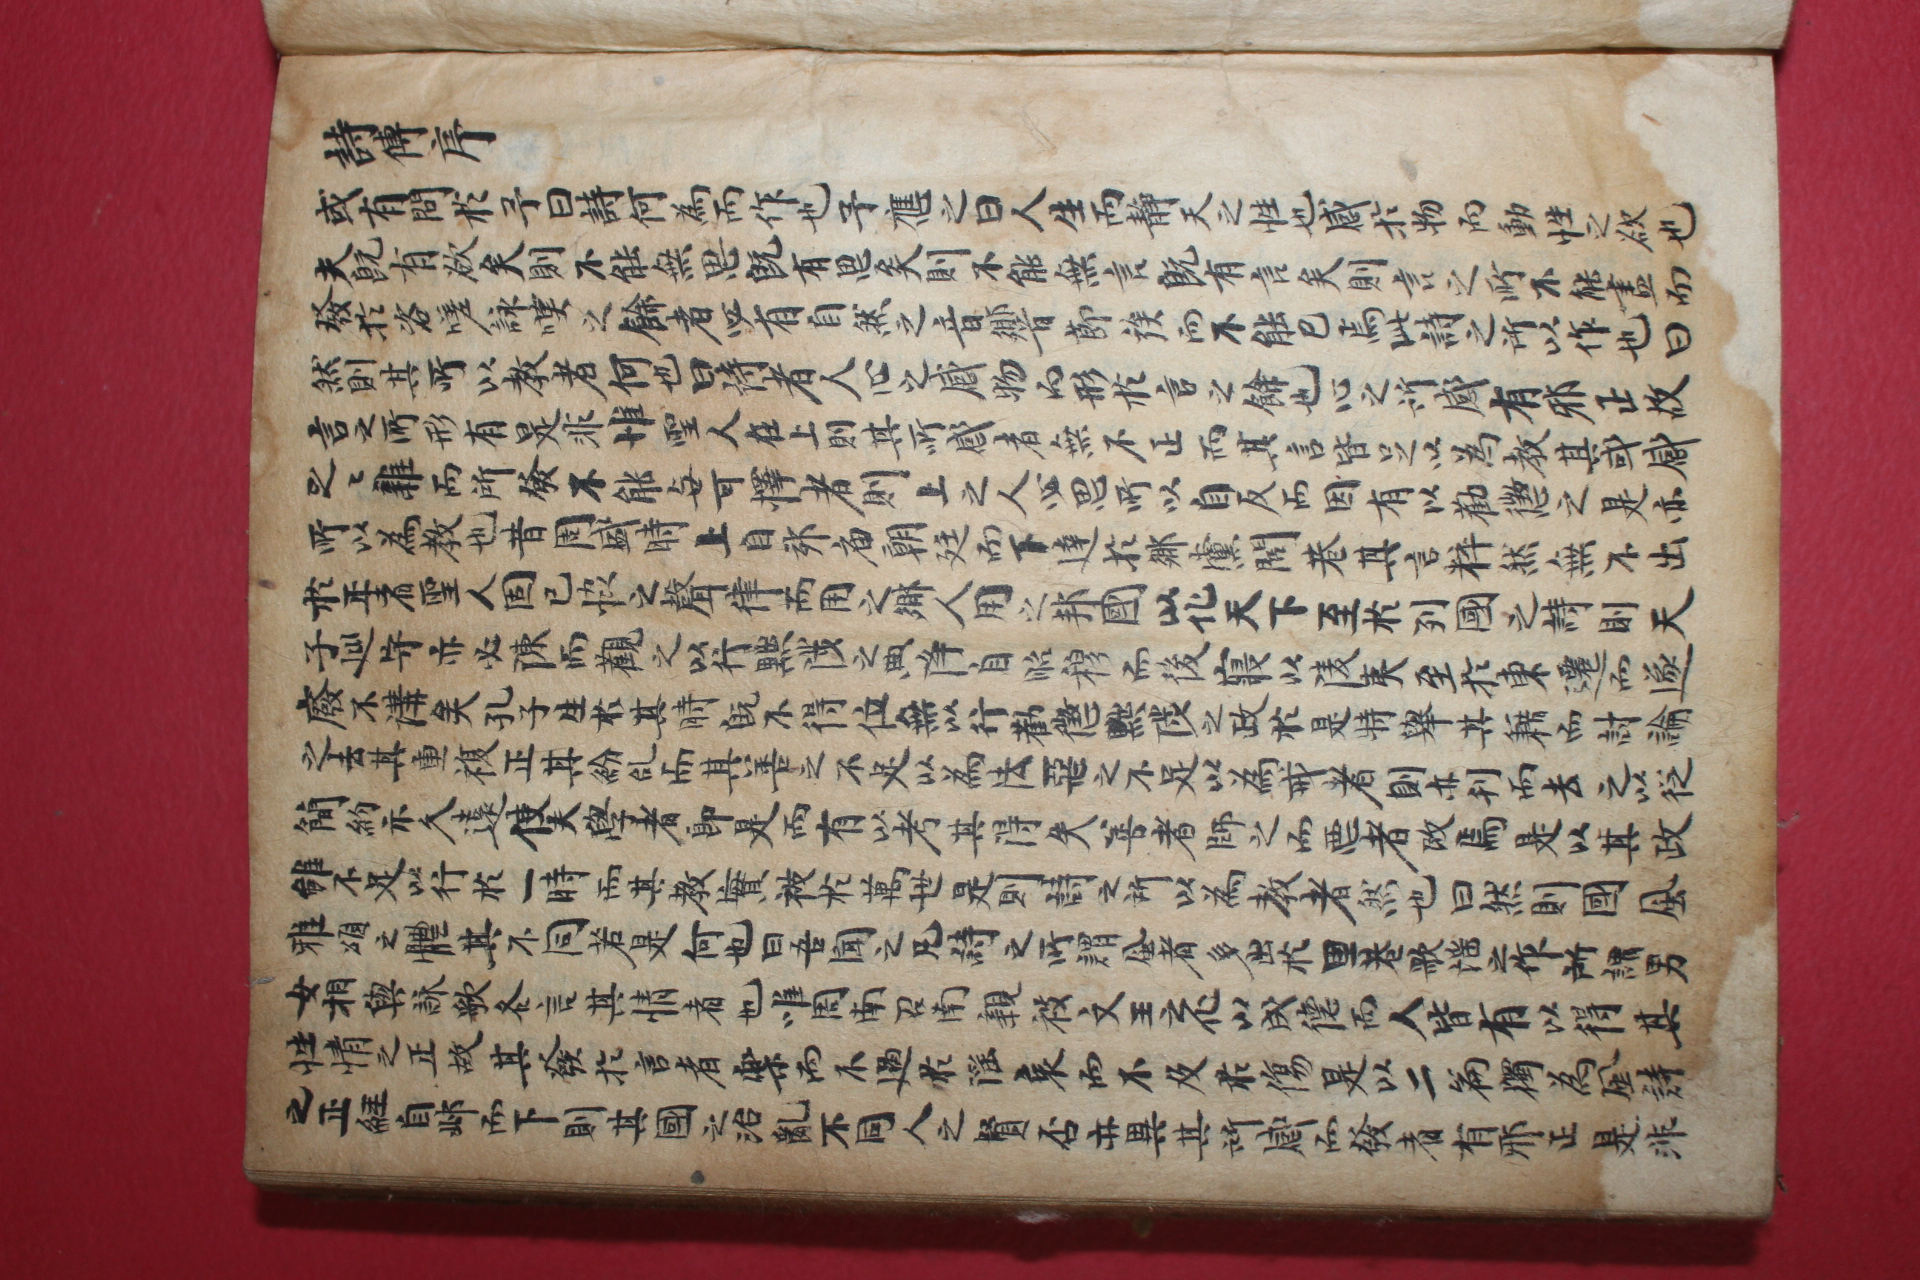 詩傳序
或有問於予曰詩何為而作也予應之曰人生而靜天之性也感於物而動性之欲也
夫既有欲矣則不能無思既有思矣則不能無言既有言矣則言之所不能盡而
發於咨嗟詠嘆之餘者必有自然之音響節族而不能已焉此詩之所以作也曰
然則其所以教者何也曰詩者人心之感物而形於言之餘也心之所感有邪正故
言之所形有是非惟聖人在上則其所感者無不正而其言皆足以為教其或感
之之雜而所發不能無可擇者則上之人必思所以自反而因有以勸懲之是亦
所以為教也昔周盛時上自郊庙朝廷而下達於鄉黨閭巷其言粹然無不出
於正者聖人固已恊之聲律而用之鄉人用之邦國以化天下至於列國之詩則天
子巡守亦必陳而觀之以行黜陟之典降自昭穆而後寢以陵夷至於東遷而遂
廢不講矣孔子生於其時既不得位無以行勸懲黜陟之政於是特舉其籍而討論
之去其重複正其紛乱而其善之不足以為法惡之不足以為戒者則亦刊而去之以從
簡約示久遠使夫學者即是而有以考其得失善者師之而悪者改焉是以其政
雖不足以行於一時而其教實被於萬世是則詩之所以為教者然也曰然則國風
雅頌之體其不同若是何也曰吾聞之凡詩之所謂風者多出於里巷歌謡之作所謂男
女相與詠歌各言其情者也唯周南召南親被文王之化以成德而人皆有以得其
性情之正故其發於言者樂而不過於淫哀而不及於傷是以二篇獨為風詩
之正經自邶而下則其國之治亂不同人之賢否亦異其所感而發者有邪正是非